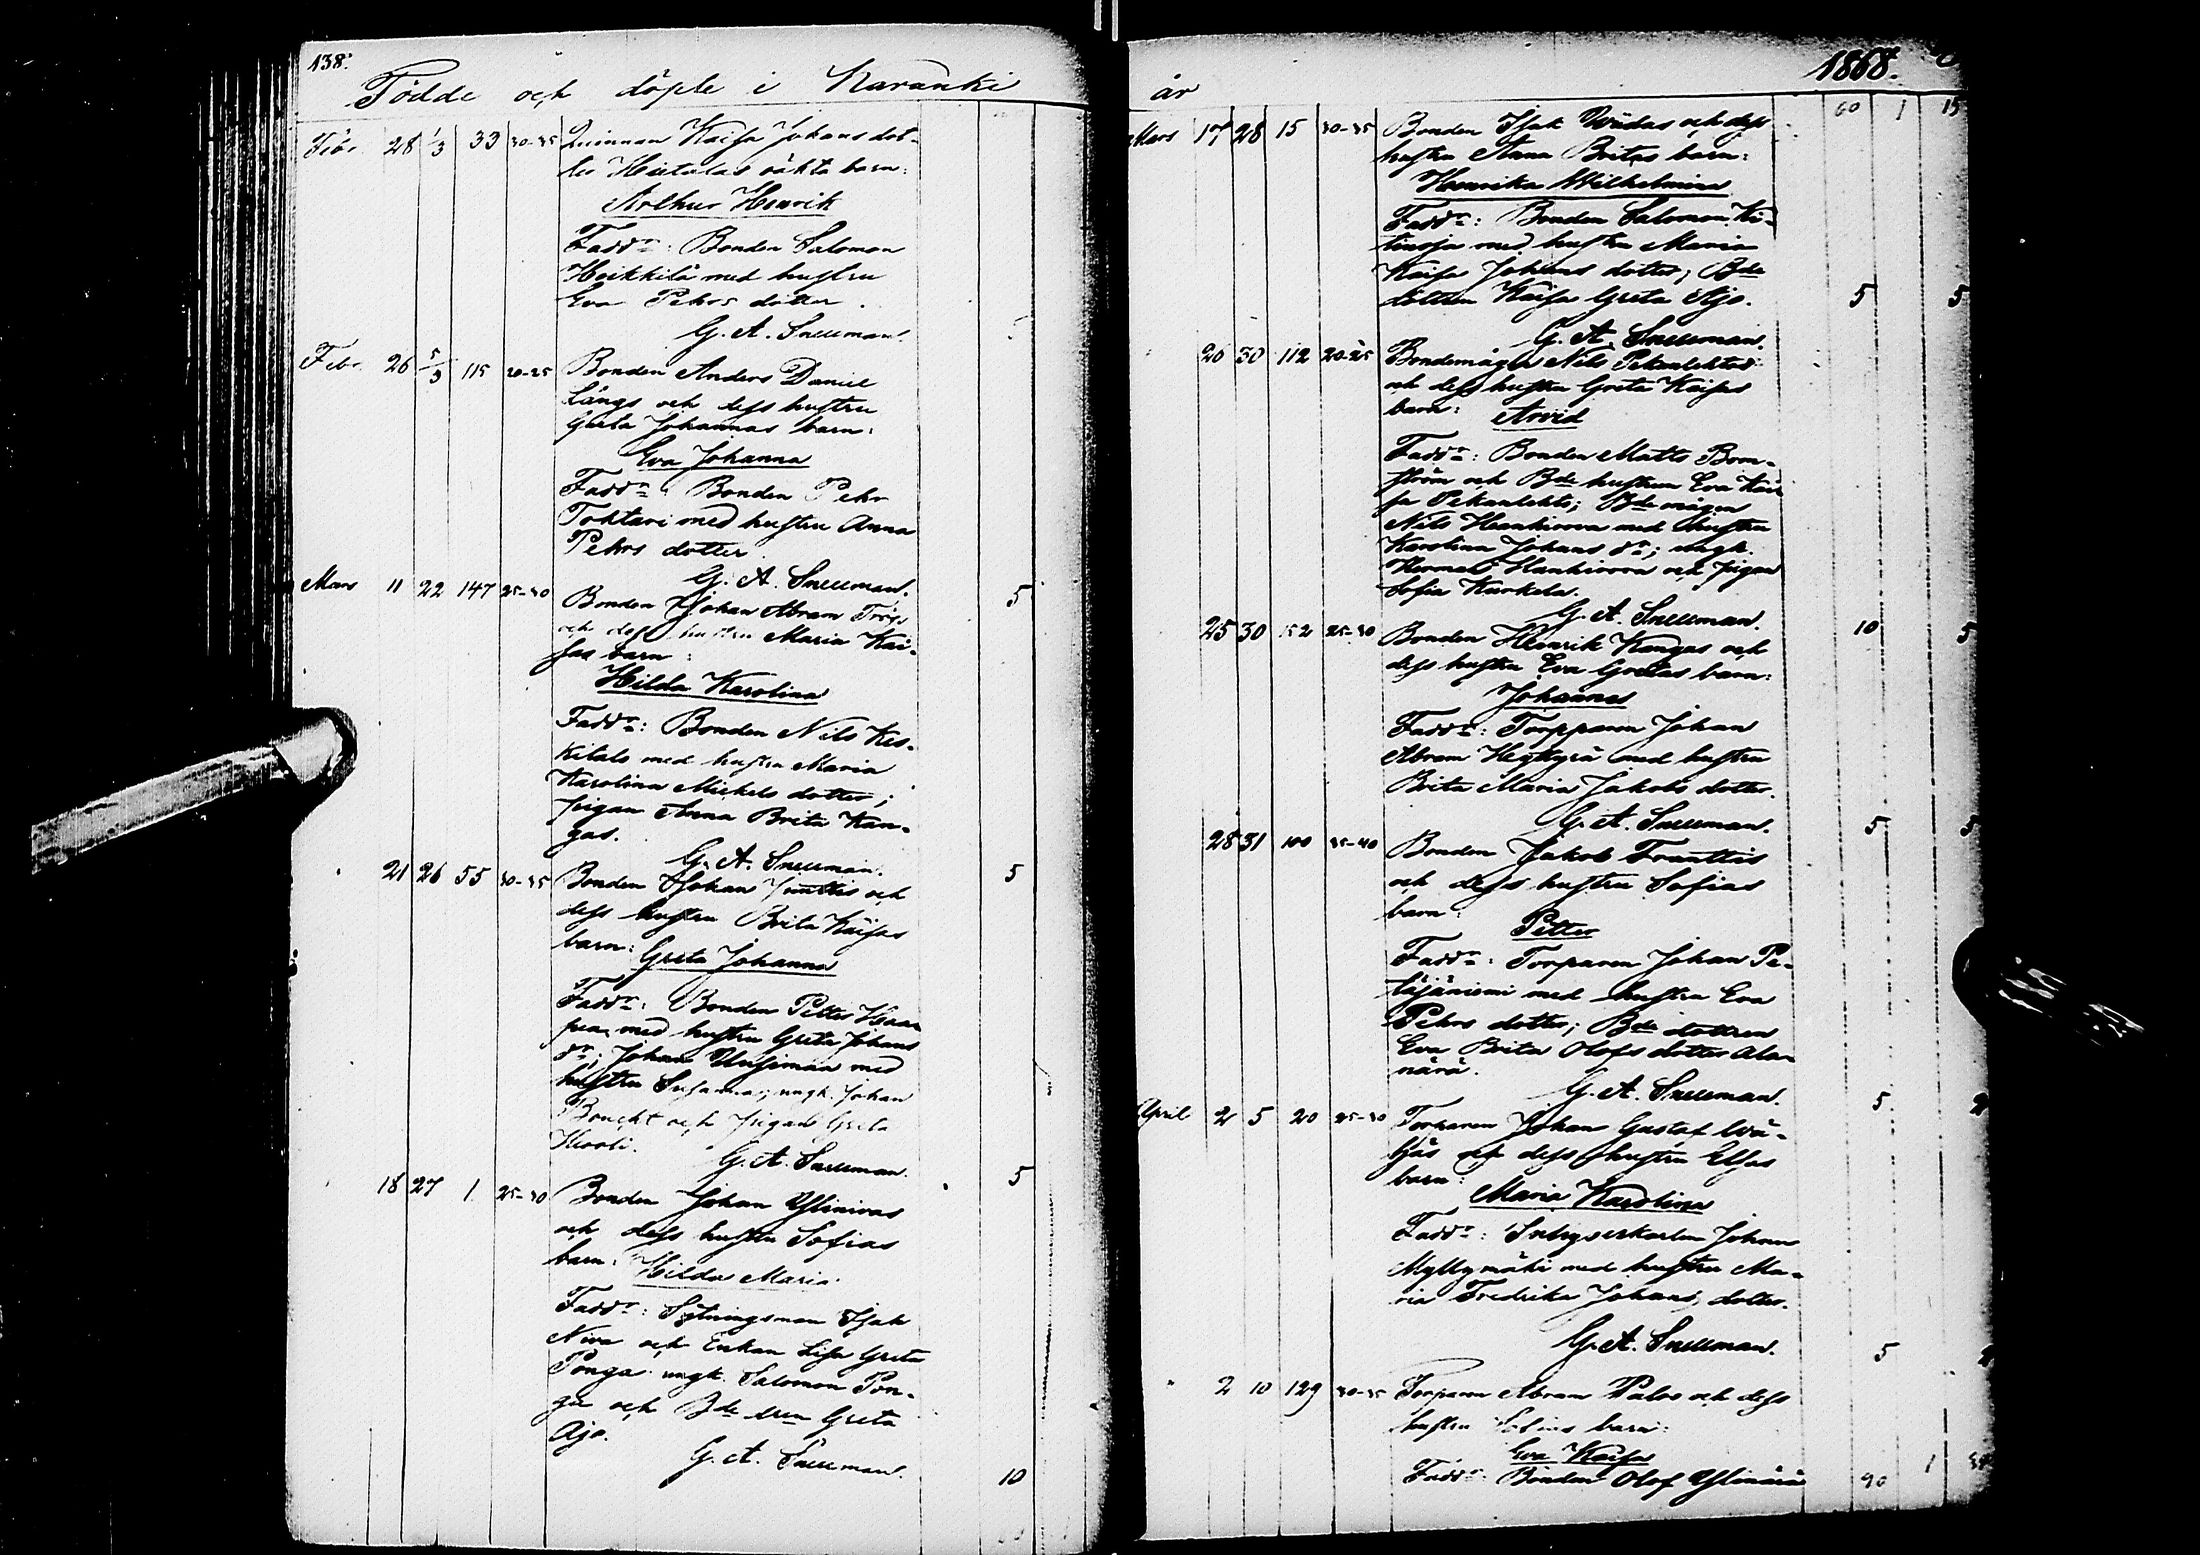 138.
Födde och döpte i Karunki
Febr. 28 1/3 33 30-35 Qvinnan Kaisa Johans dot-
ter Hietalas oäkta barn:
Arthur Henrik
Faddr: Bonden Salomon
Heikkilä med hustru
Eva Pehrs dotter.
G. A. Snellman.
Febr. 26 5/3 115 20-25 Bonden Anders Daniel
Längs och dess hustru
Greta Johannas barn:
Eva Johanna
Faddr: Bonden Pehr
Tohtari med hustru Anna
Pehrs dotter
G. A. Snellman.
Mars 11 22 147 25-30 Bonden Johan Abram 5
och dess hustru Maria Kai-
sas barn:
Hilda Karolina
Faddr: Bonden Nils Kes-
kitalo med hustru Maria
Karolina Mickels dotter;
pigan Anna Brita Kan-
gas.
G. A. Snellman.
21 26 55 30-35 Bonden Johan Junttis och 5
dess hustru Brita Kaisas
barn: Greta Johanna
Faddr: Bonden Petter Haa-
paa med hustru Greta Johans
dr; Johan Unsimaa med
hustru Susanna; ungk. Johan
Boucht och pigan Greta
G. A. Snellman.
18 27 1 25-30 Bonden Johan Ylinivas 5
och dess hustru Sofias
barn: Hilda Maria
Faddr: Sytningsman Isak
Niva och Enkan Lisa Greta
Ponga ungk. Salomon Pon-
ga och Bde dren Greta
Ajo.
G. A. Snellman. 10
år 1868.
60 1 15
Mars 17 28 15 30-35 Bonden Isak och dess
hustru Anna Britas barn:
Henrika Wilhelmina
Faddr: Bonden Salomon Ki-
tinoja med hustru Maria
Kaisa Johans dotter; Bde
dottren Kaisa Greta Ajo. 5 5
G. A. Snellman.
20 30 112 20-25 Bondemågen Nils Pekanlehtos
och dess hustru Greta Kaisas
barn: Arvid
Faddr: Bonden Matts Bom-
ström och Bde hustrun Eva Kai-
sa Pekanlehto; Bde mågen
Nils Hankivova med hustru
Karolina Johans dr; ungk.
Herman Hankivova och pigan
Sofia Kurkela.
G. A. Snellman.
25 30 152 25-30 Bonden Henrik Kangas och 10 5
dess hustru Eva Gretas barn:
Johannes
Faddr: Torpparen Johan
Abram Heykyrä med hustru
Brita Maria Jakobs dotter.
G. A. Snellman. 5 5
28 31 100 35-40 Bonden Jakob Frunttis
och dess hustru Sofias
barn:
Petter
Faddr: Torparen Johan Pe-
täjäniemi med hustru Eva
Pehrs dotter; Bde dottren
Eva Brita Olofs dotter Ala-
närä.
G. A. Snellman. 5
April 2 5 20 25-30 Torparen Johan Gustaf Wä-
ljäs och dess hustru Elsas
barn:
Maria Karolina
Faddr: Inhyseskarlen Johan
Myllymäki med hustru Ma-
ria Fredrika Johans dotter.
G. A. Snellman. 5
" 2 10 129 30-35 Torparen Abram Palos och dess
hustru Sofias barn:
Eva Kaisa
Faddr: Bonden Olof Ylinärä 90 1